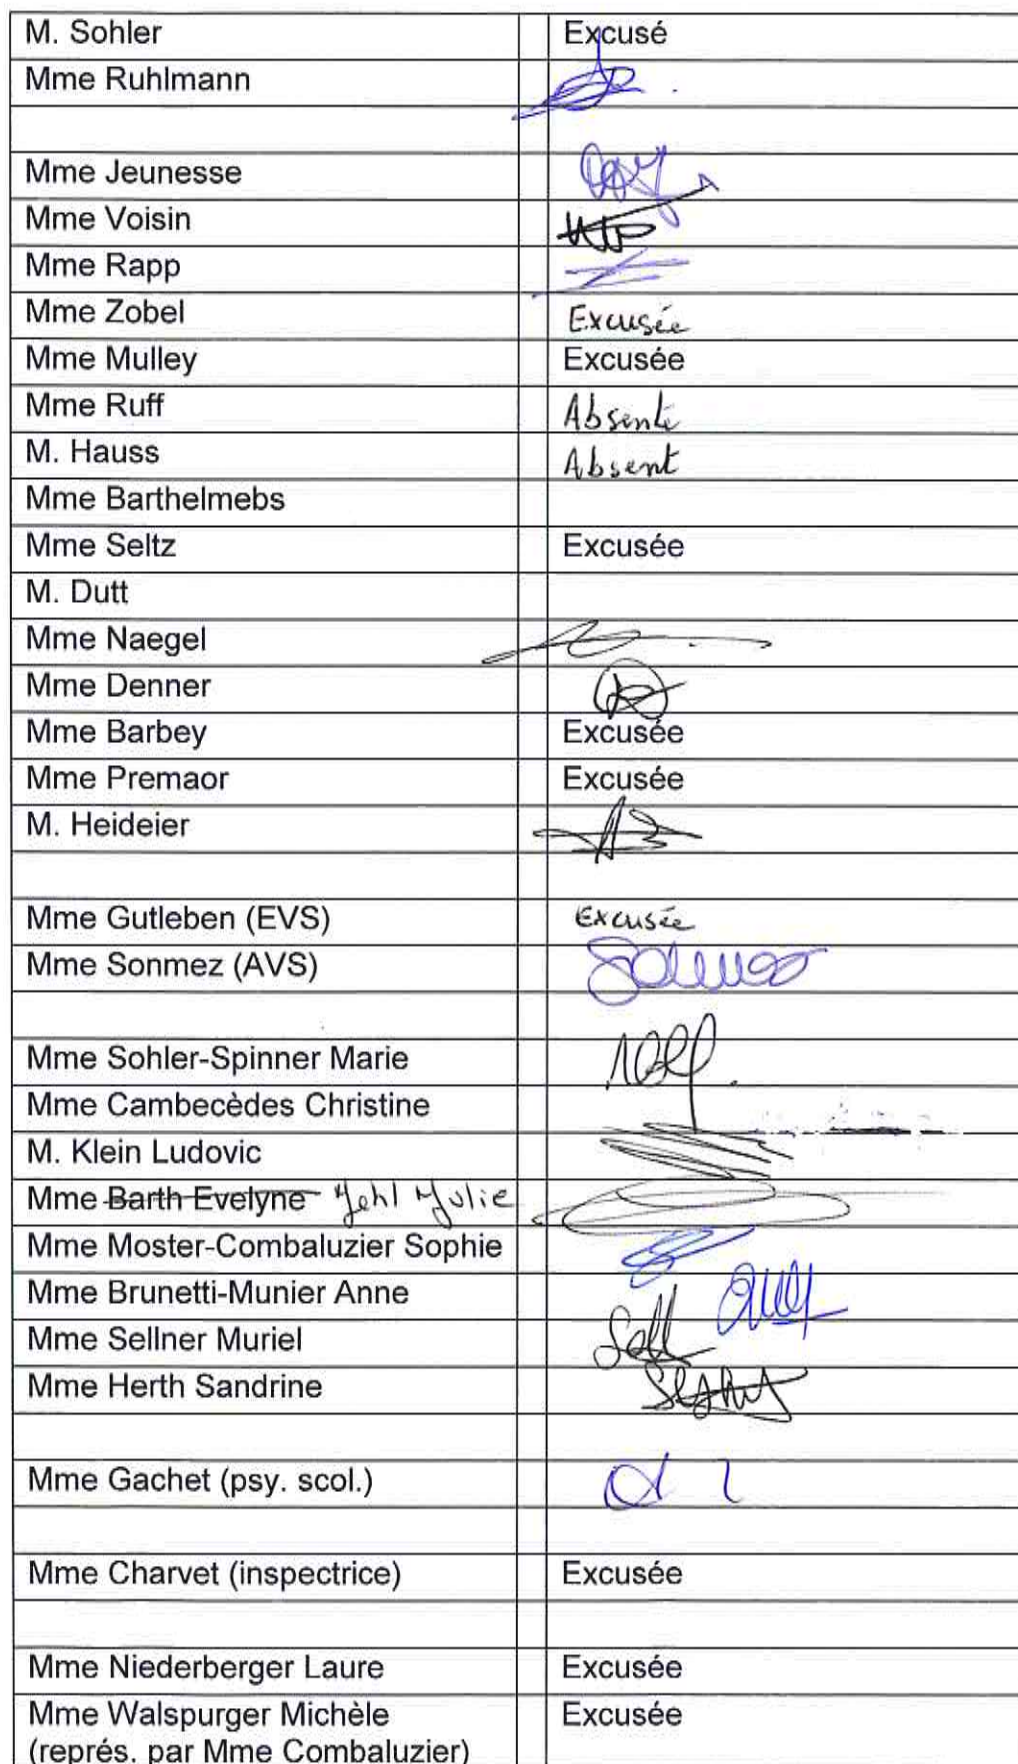 M. Sohler Excusé
Mme Ruhlmann
Mme Jeunesse
Mme Voisin
Mme Rapp
Mme Zobel Excusée
Mme Mulley Excusée
Mme Ruff Absente
M. Hauss Absent
Mme Barthelmebs
Mme Seltz Excusée
M. Dutt
Mme Naegel
Mme Denner
Mme Barbey Excusée
Mme Premaor Excusée
M. Heideier
Mme Gutleben (EVS) Excusée
Mme Sonmez (AVS)
Mme Sohler-Spinner Marie
Mme Cambecèdes Christine
M. Klein Ludovic
Mme Barth Evelyne Jehl Julie
Mme Moster-Combaluzier Sophie
Mme Brunetti-Munier Anne
Mme Sellner Muriel
Mme Herth Sandrine
Mme Gachet (psy. scol.)
Mme Charvet (inspectrice) Excusée
Mme Niederberger Laure Excusée
Mme Walspurger Michèle Excusée
(représ. par Mme Combaluzier)